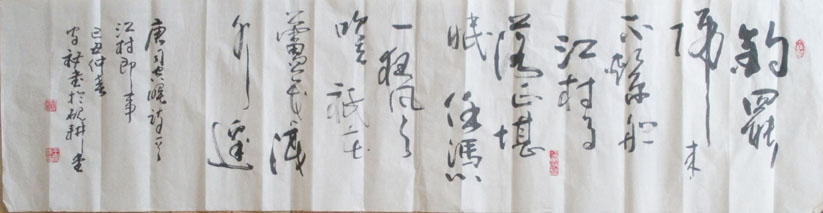 釣罷
歸來
不繫船
江村月
落正堪
眠任憑
一狂風
吹去祇在
蘆花淺
水邊
唐司空曙詩
江村即事
己丑仲春
書於硯耕堂